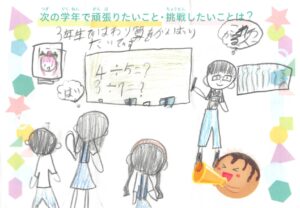 次の学年で頑張りたいこと・挑戦したいことは？
3年生ではわり算をがんばり
たいです
4÷5=?
3÷7=?
はい